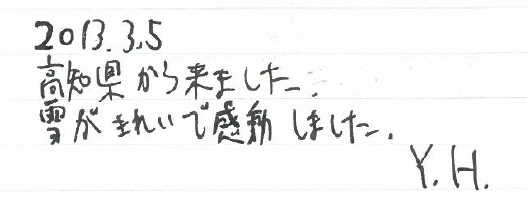 2013.3.5
高知県から来ました.
雪がきれいで感動しました.
Y.H.